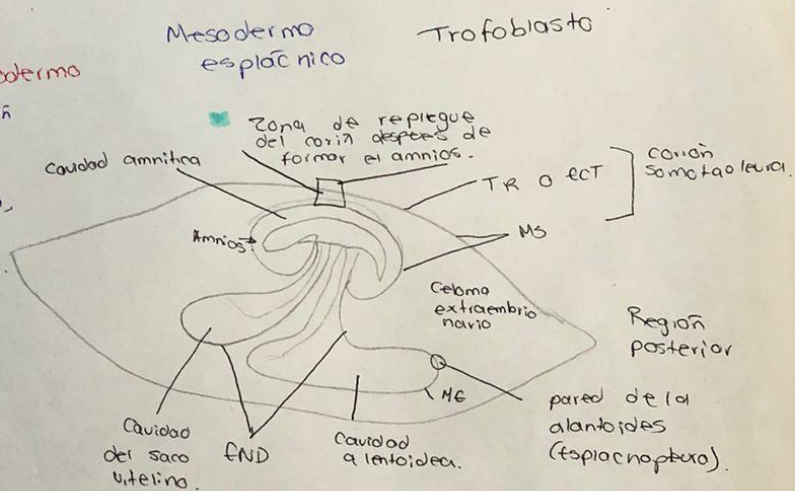 Mesodermo
esplácnico
Trofoblasto
Zona de repliegue
del corión después de
formar el amnios.
Cavidad amnitina
TR O ECT
corion
somotaoleura.
Amnios
MS
Celoma
extraembrio
nario
Región
posterior
ME
pared de la
alantoides
(Esplacnoptura).
Cavidad
del saco
vitelino.
END
Cavidad
alentoidea.